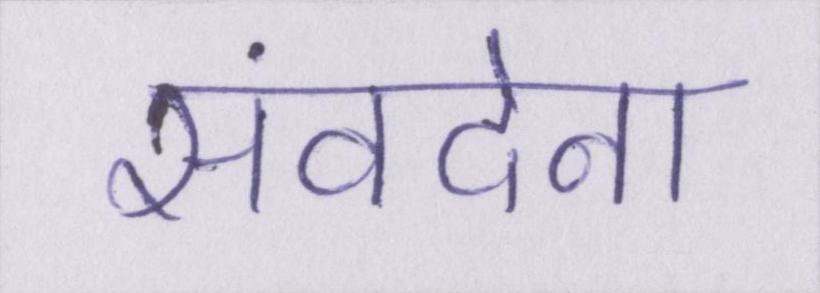 संवदेना